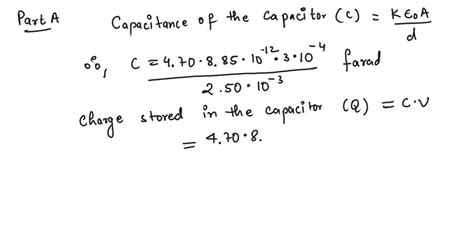 Part A Capacitance of the Capacitor (C) = Kε₀A / d
∴, C = 4.70 · 8.85 · 10⁻¹² · 3 · 10⁻⁴ / 2.50 · 10⁻³ farad
Charge stored in the capacitor (Q) = C·V
= 4.70 · 8.